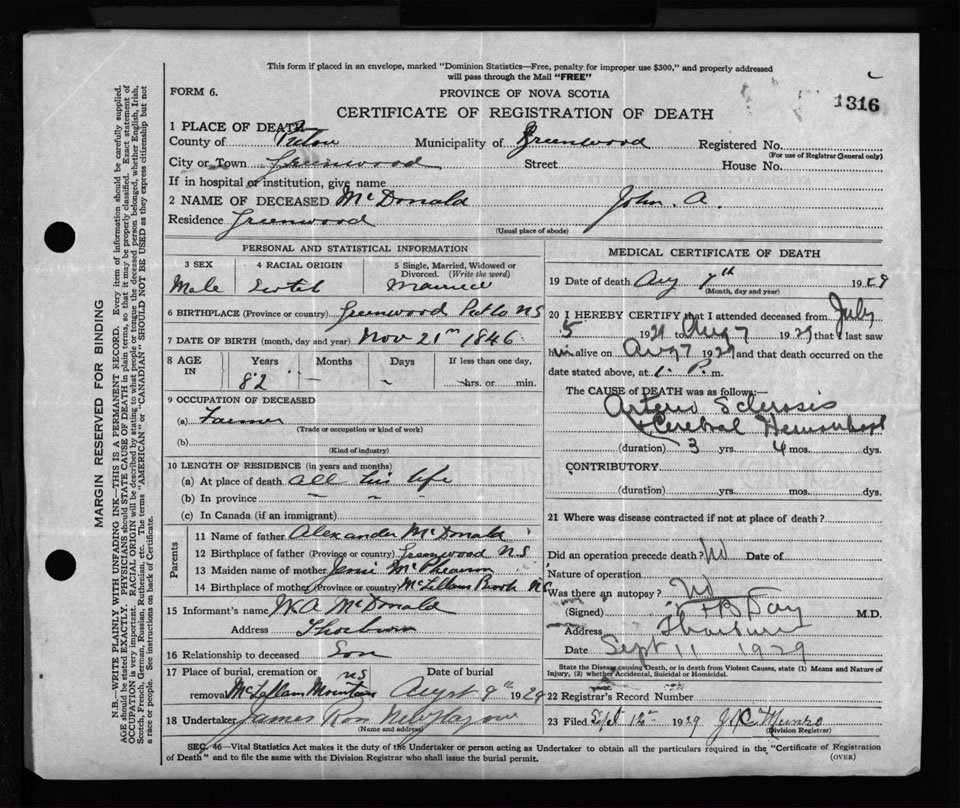 This form if placed in an envelope, marked "Dominion Statistics—Free, penalty for improper use $300," and properly addressed
will pass through the Mail "FREE"
FORM 6.
PROVINCE OF NOVA SCOTIA
CERTIFICATE OF REGISTRATION OF DEATH
1316
1 PLACE OF DEATH
County of Pictou Municipality of Greenwood Registered No.
(For use of Registrar General only)
City or Town Greenwood Street House No.
If in hospital or institution, give name
2 NAME OF DECEASED McDonald John. A.
Residence Greenwood
(Usual place of abode)
PERSONAL AND STATISTICAL INFORMATION
3 SEX
Male
4 RACIAL ORIGIN
5 Single, Married, Widowed or
Divorced. (Write the word)
Married
6 BIRTHPLACE (Province or country) Greenwood NS
7 DATE OF BIRTH (month, day and year) Nov 21st 1846
8 AGE IN
Years Months Days If less than one day,
82 — — hrs. or min.
9 OCCUPATION OF DECEASED
(a) Farmer
(Trade or occupation or kind of work)
(b)
(Kind of industry)
10 LENGTH OF RESIDENCE (in years and months)
(a) At place of death all his life
(b) In province
(c) In Canada (if an immigrant)
Parents
11 Name of father Alexander McDonald
12 Birthplace of father (Province or country) Greenwood NS
13 Maiden name of mother
14 Birthplace of mother (Province or country)
15 Informant's name McDonald
Address Thorburn
16 Relationship to deceased Son
17 Place of burial, cremation or
removal McLellans Mountain NS
Date of burial
August 9th 1929
18 Undertaker James Ross New Glasgow
(Name and address)
MEDICAL CERTIFICATE OF DEATH
19 Date of death Aug 7th 1929
(Month, day and year)
20 I HEREBY CERTIFY that I attended deceased from July
5 1929 to Aug 7 1929 that I last saw
him alive on Aug 7 1929 and that death occurred on the
date stated above, at 1. P. m.
The CAUSE of DEATH was as follows:
Arterio Sclerosis
Cerebral Hemorrhage
(duration) 3 yrs. 4 mos. dys.
CONTRIBUTORY
(duration) yrs. mos. dys.
21 Where was disease contracted if not at place of death?
Did an operation precede death? No Date of
Nature of operation
Was there an autopsy? No
(Signed) H B Day M.D.
Address Thorburn
Date Sept 11 1929
State the Disease causing Death, or in death from Violent Causes, state (1) Means and Nature of
Injury, (2) whether Accidental, Suicidal or Homicidal.
22 Registrar's Record Number
23 Filed Sept 12th 1929 Munro
(Division Registrar)
SEC. 46—Vital Statistics Act makes it the duty of the Undertaker or person acting as Undertaker to obtain all the particulars required in the "Certificate of Registration
of Death" and to file the same with the Division Registrar who shall issue the burial permit.
(OVER)
MARGIN RESERVED FOR BINDING
N.B.—WRITE PLAINLY WITH UNFADING INK—THIS IS A PERMANENT RECORD. Every item of information should be carefully supplied.
AGE should be stated EXACTLY. PHYSICIANS should STATE CAUSE OF DEATH in plain terms, so that it may be properly classified. Exact statement of
OCCUPATION is very important. RACIAL ORIGIN will be described by stating to what people or tongue the deceased person belonged, whether English, Irish,
Scotch, French, German, Russian, Ruthenian, etc. The terms "AMERICAN" or "CANADIAN" SHOULD NOT BE USED as they express citizenship but not
a race or people. See instructions on back of Certificate.